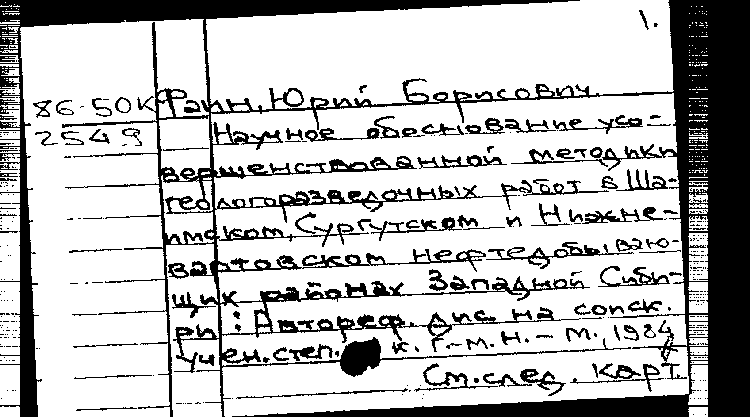 1.
86-50К Фаин, Юрий Борисович.
2549 Научное обоснование усо-
вершенствованной методики
геологоразведочных работ в Ша-
имском, Сургутском и Нижне-
вартовском нефтедобываю-
щих районах Западной Сиби-
ри : Автореф. дис. на соиск.
учен. степ. к. г.-м. н. - М., 1984
См. след. карт.